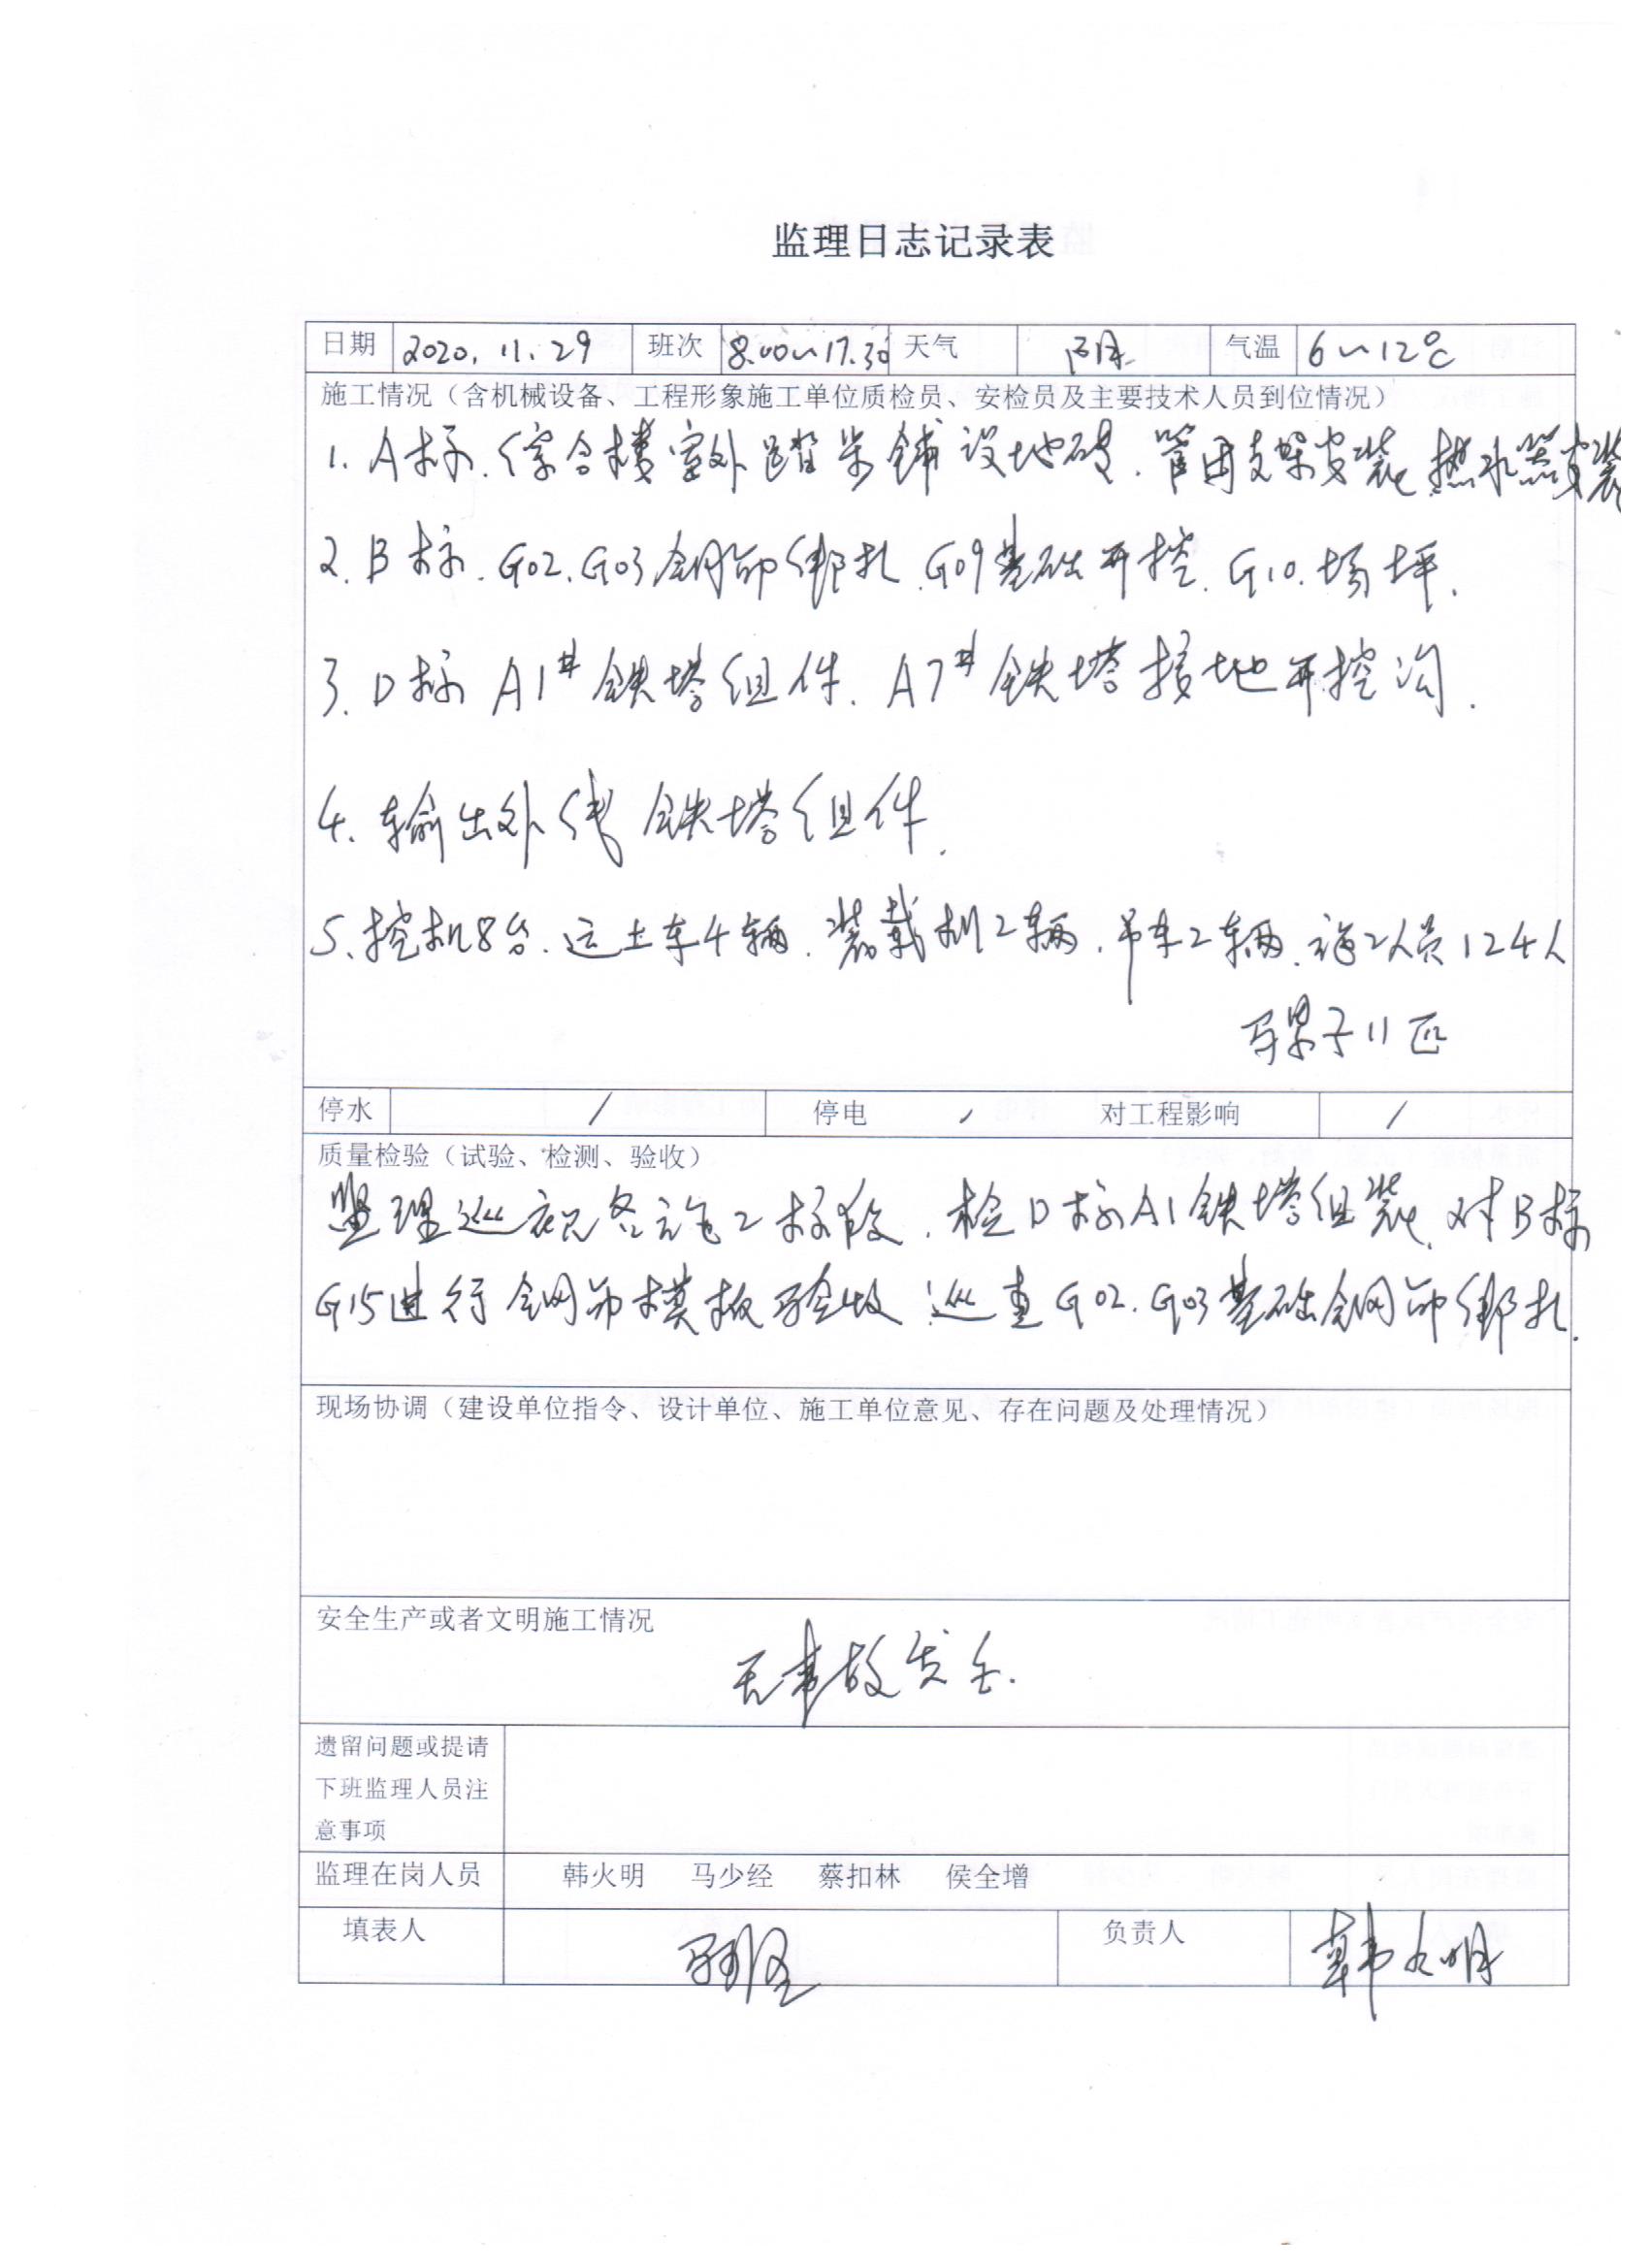 监理日志记录表
日期 2020.11.29 班次 8.00~17.30 天气 阴 气温 6~12℃
施工情况（含机械设备、工程形象施工单位质检员、安检员及主要技术人员到位情况）
1. A标.综合楼室外踏步铺设地砖.管网支架安装.热水器安装
2. B标.G02.G03钢筋绑扎.G09基础开挖.G10.场坪.
3. D标 A1#铁塔组件. A7#铁塔接地开挖沟.
4. 输出外线铁塔组件.
5、挖机8台.运土车4辆.装载机2辆.吊车2辆.施工人员124人
马累子11匹
停水 / 停电 / 对工程影响 /
质量检验（试验、检测、验收）
监理巡视各施工标段.检D标A1铁塔组装.对B标
G15进行钢筋模板验收.巡查G02.G03基础钢筋绑扎.
现场协调（建设单位指令、设计单位、施工单位意见、存在问题及处理情况）
安全生产或者文明施工情况
无事故发生.
遗留问题或提请
下班监理人员注
意事项
监理在岗人员 韩火明 马少经 蔡扣林 侯全增
填表人 负责人 韩火明